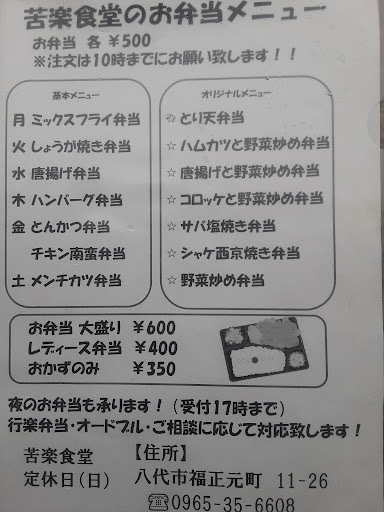 苦楽食堂のお弁当メニュー
お弁当 各 ￥500
※注文は10時までにお願い致します！！
基本メニュー
月 ミックスフライ弁当
火 しょうが焼き弁当
水 唐揚げ弁当
木 ハンバーグ弁当
金 とんかつ弁当
チキン南蛮弁当
土 メンチカツ弁当
オリジナルメニュー
☆ とり天弁当
☆ ハムカツと野菜炒め弁当
☆ 唐揚げと野菜炒め弁当
☆ コロッケと野菜炒め弁当
☆ サバ塩焼き弁当
☆ シャケ西京焼き弁当
☆ 野菜炒め弁当
お弁当 大盛り ￥600
レディース弁当 ￥400
おかずのみ ￥350
夜のお弁当も承ります！（受付17時まで）
行楽弁当・オードブル・ご相談に応じて対応致します！
苦楽食堂 【住所】
定休日(日) 八代市福正元町 11-26
☎0965-35-6608